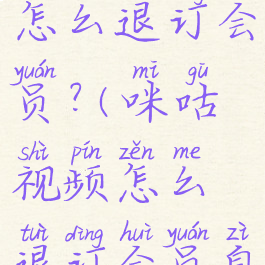 怎么退订会
yuán mī gū
员?(咪咕
shì pín zěn me
视频怎么
tuì dìng huì yuán zì
退订会员自